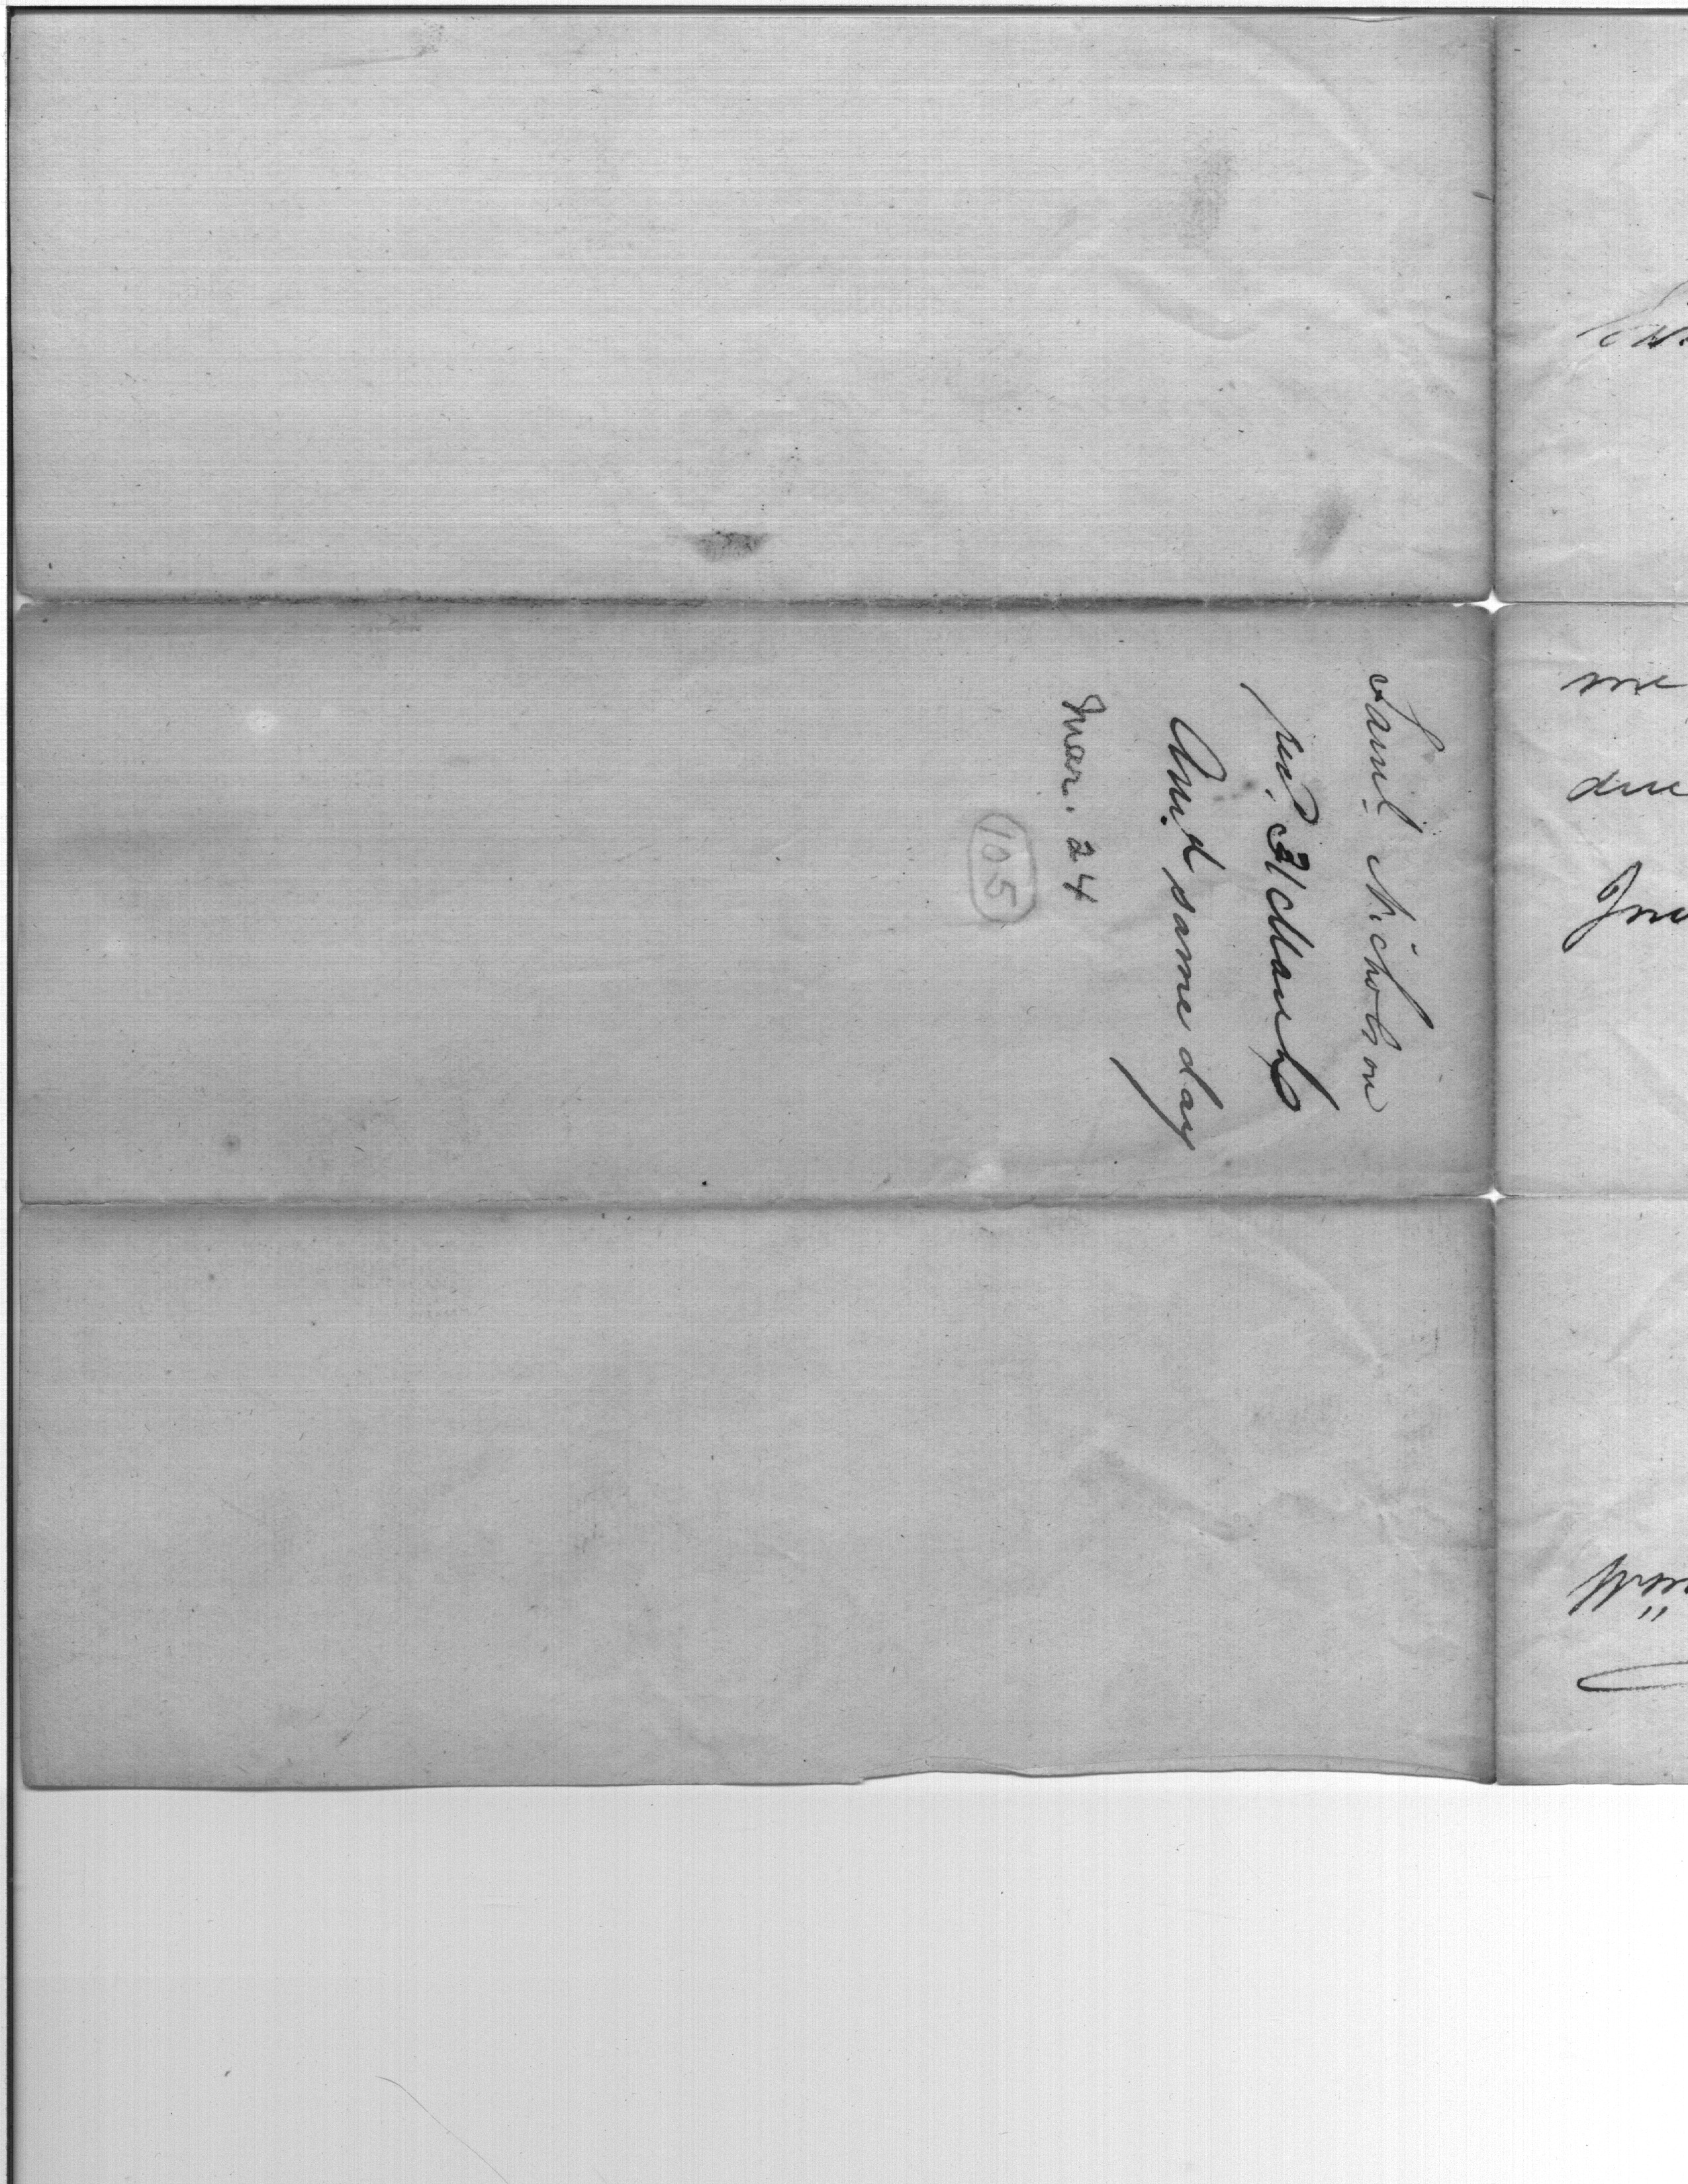 Saml. Nicholson
recd. 31 March
Answ.d same day
Mar. 24
105
me
due